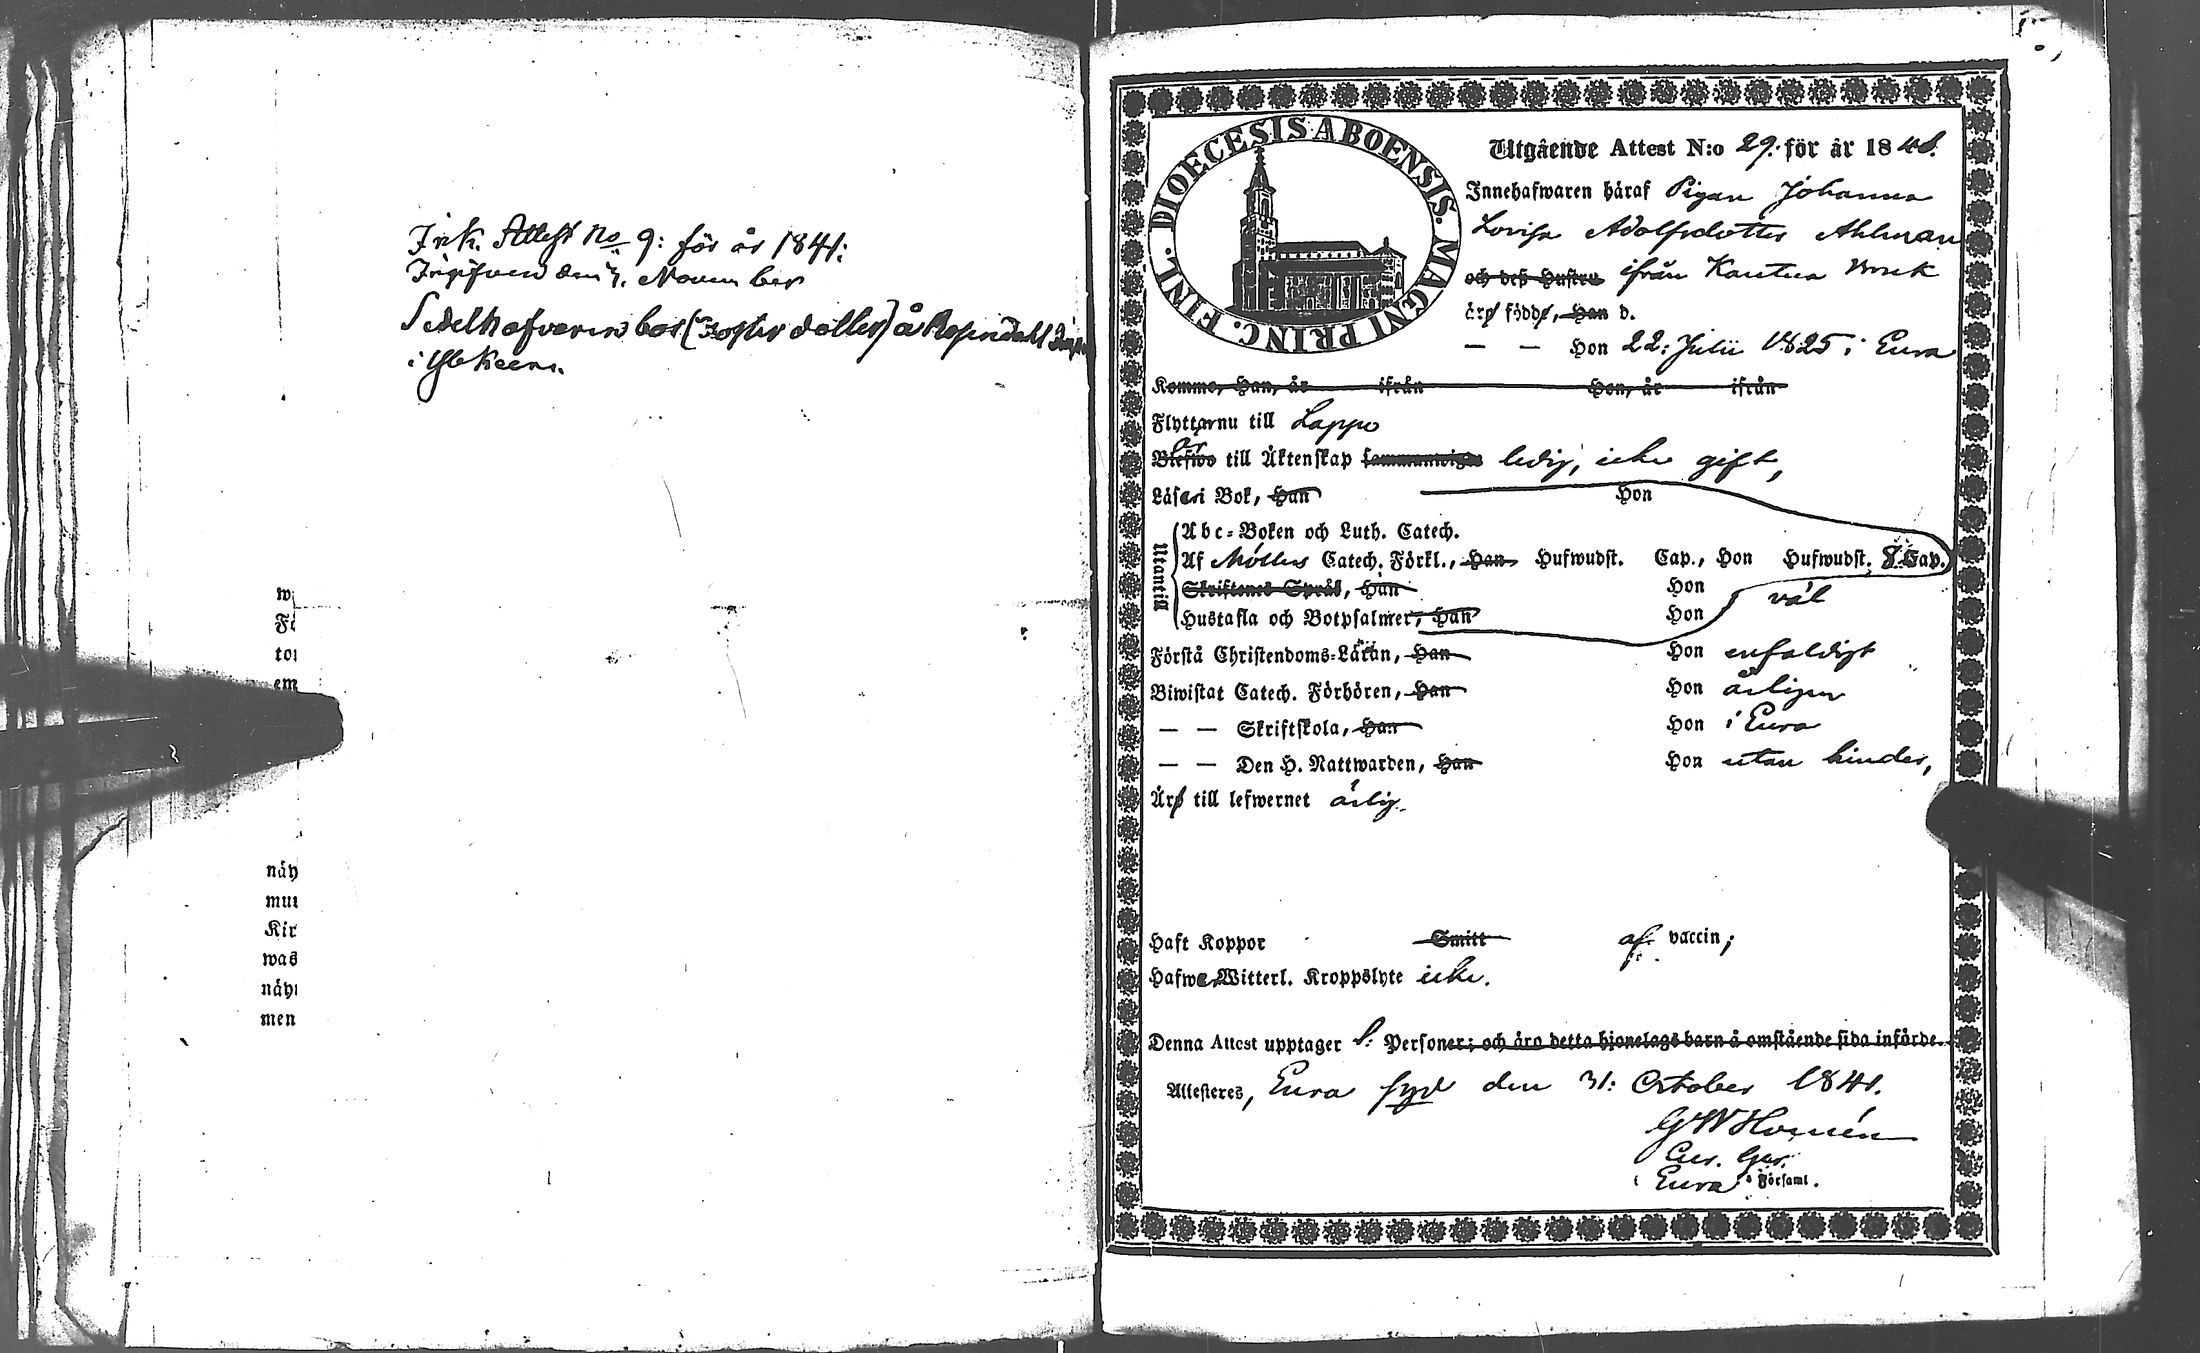 Ink. Attest No 9: för år 1841:
den 7. November
Sedelhafvaren bor (Foster dotter) å Rosendahl
i
w
Fö
tor
em
näh
mun
Kir
was
näh
men
DIOECESIS ABOENSIS. MAGNI PRINC. FINL.
Utgående Attest N:o 29. för år 1841.
Innehafwaren häraf Pigan Johanna
Lovisa Adolfsdotter Ahlman
och deß Hustru ifrån Kautua Bruk
äro födde, Han d.
— — Hon 22: Julii 1825 i Eura
Komne, Han, år ifrån Hon, år ifrån
Flyttar nu till Lappo
Blefwo till Äktenskap ledig, icke gift,
Läser i Bok, Han Hon
Utantill
Abc-Boken och Luth. Catech.
Af Möllers Catech. Förkl., Han Hufwudst. Cap., Hon Hufwudst. 8 Cap.
Skriftenes Språk, Han Hon väl
Hustafla och Botpsalmer, Han Hon
Förstå Christendoms-Läran, Han Hon enfaldigt
Biwistat Catech. Förhören, Han Hon årligen
— — Skriftskola, Han Hon i Eura
— — Den H. Nattwarden, Han Hon utan hinder,
Äro till lefwernet ärlig.
Haft Koppor Smitt af vaccin;
Hafwer Witterl. Kroppslyte icke.
Denna Attest upptager 1: Personer; och äro detta hjonelags barn å omstående sida införde.
Attesteres, Eura den 31: October 1841.
G W Homén
i Eura Församl.